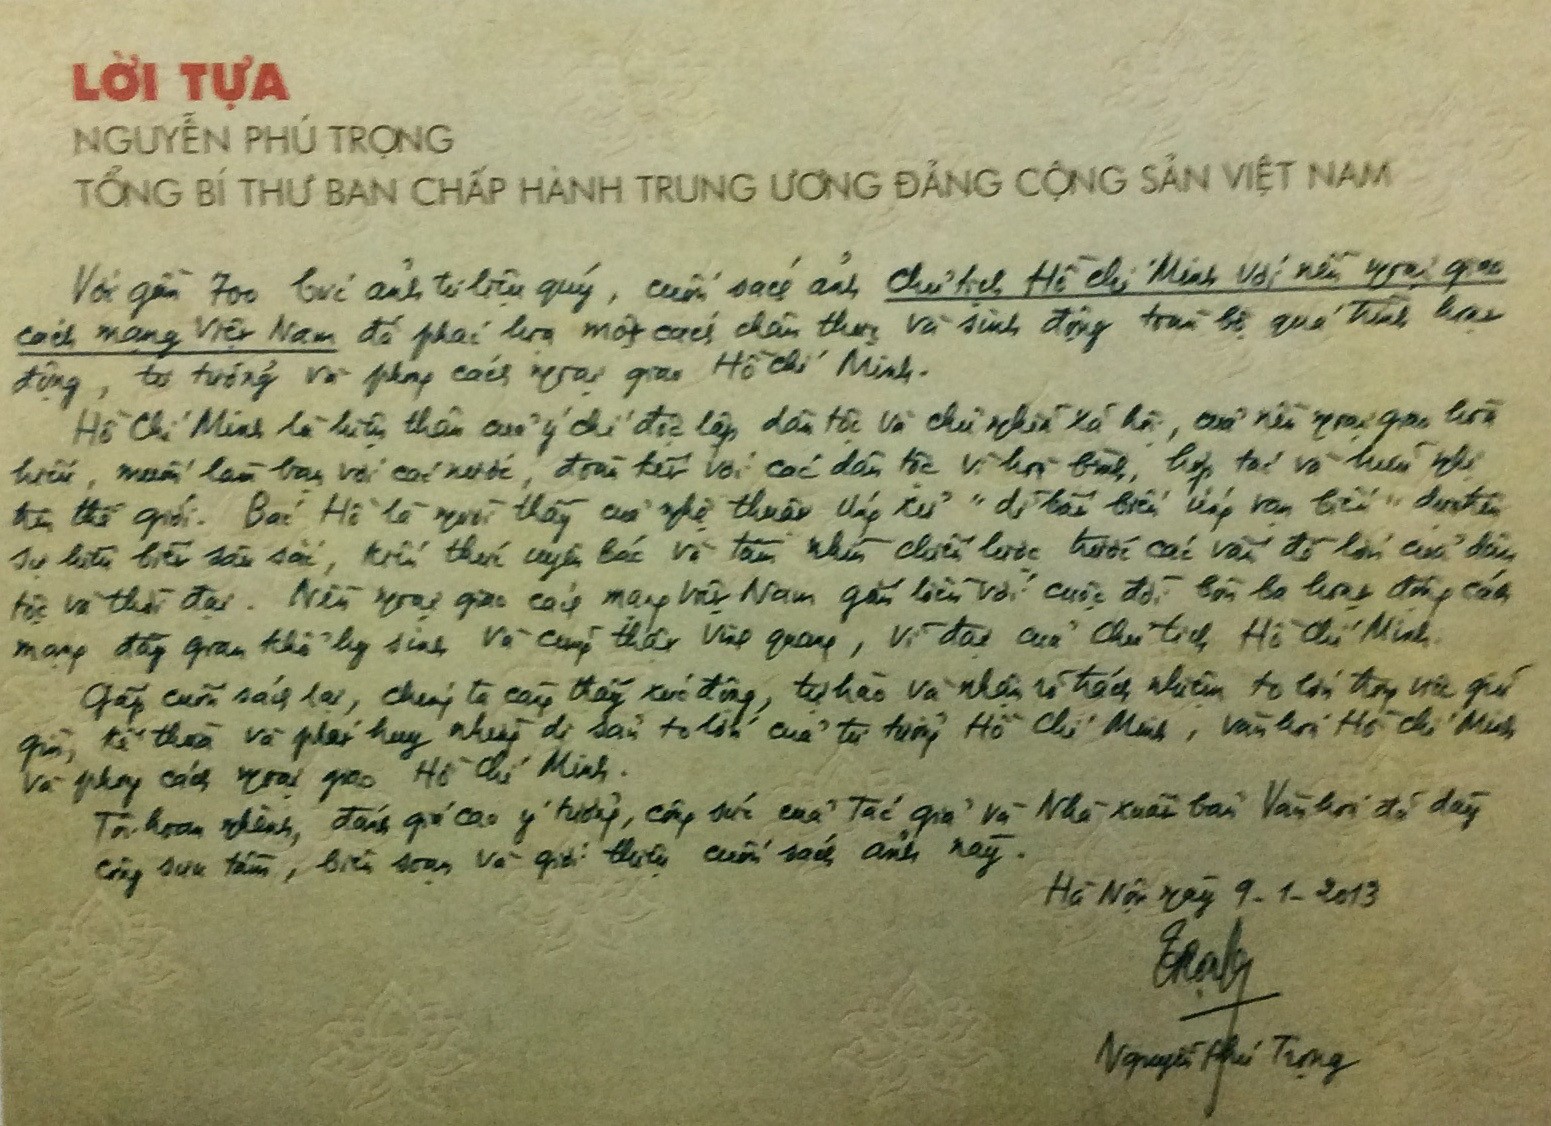 LỜI TỰA
NGUYỄN PHÚ TRỌNG
TỔNG BÍ THƯ BAN CHẤP HÀNH TRUNG ƯƠNG ĐẢNG CỘNG SẢN VIỆT NAM
Với gần 700 bức ảnh tư liệu quý, cuốn sách ảnh Chủ tịch Hồ Chí Minh với nền ngoại giao
cách mạng Việt Nam đã phác họa một cách chân thực và sinh động toàn bộ quá trình hoạt
động, tư tưởng và phong cách ngoại giao Hồ Chí Minh.
Hồ Chí Minh là hiện thân của ý chí độc lập dân tộc và chủ nghĩa xã hội, của nền ngoại giao hòa
hiếu, muốn làm bạn với các nước, đoàn kết với các dân tộc vì hòa bình, hợp tác và hữu nghị
trên thế giới. Bác Hồ là người thầy của nghệ thuật ứng xử "dĩ bất biến ứng vạn biến" dựa trên
sự hiểu biết sâu sắc, kiến thức uyên bác và tầm nhìn chiến lược trước các vấn đề lớn của dân
tộc và thời đại. Nền ngoại giao cách mạng Việt Nam gắn liền với cuộc đời bôn ba hoạt động cách
mạng đầy gian khổ hy sinh và cũng thật vinh quang, vĩ đại của Chủ tịch Hồ Chí Minh.
Gấp cuốn sách lại, chúng ta càng thấy xúc động, tự hào và nhận rõ trách nhiệm to lớn trong việc giữ
gìn, kế thừa và phát huy những di sản to lớn của tư tưởng Hồ Chí Minh, văn hóa Hồ Chí Minh
và phong cách ngoại giao Hồ Chí Minh.
Tôi hoan nghênh, đánh giá cao ý tưởng, công sức của Tác giả và Nhà xuất bản Văn hóa đã dày
công sưu tầm, biên soạn và giới thiệu cuốn sách ảnh này.
Hà Nội ngày 9-1-2013
Trọng
Nguyễn Phú Trọng